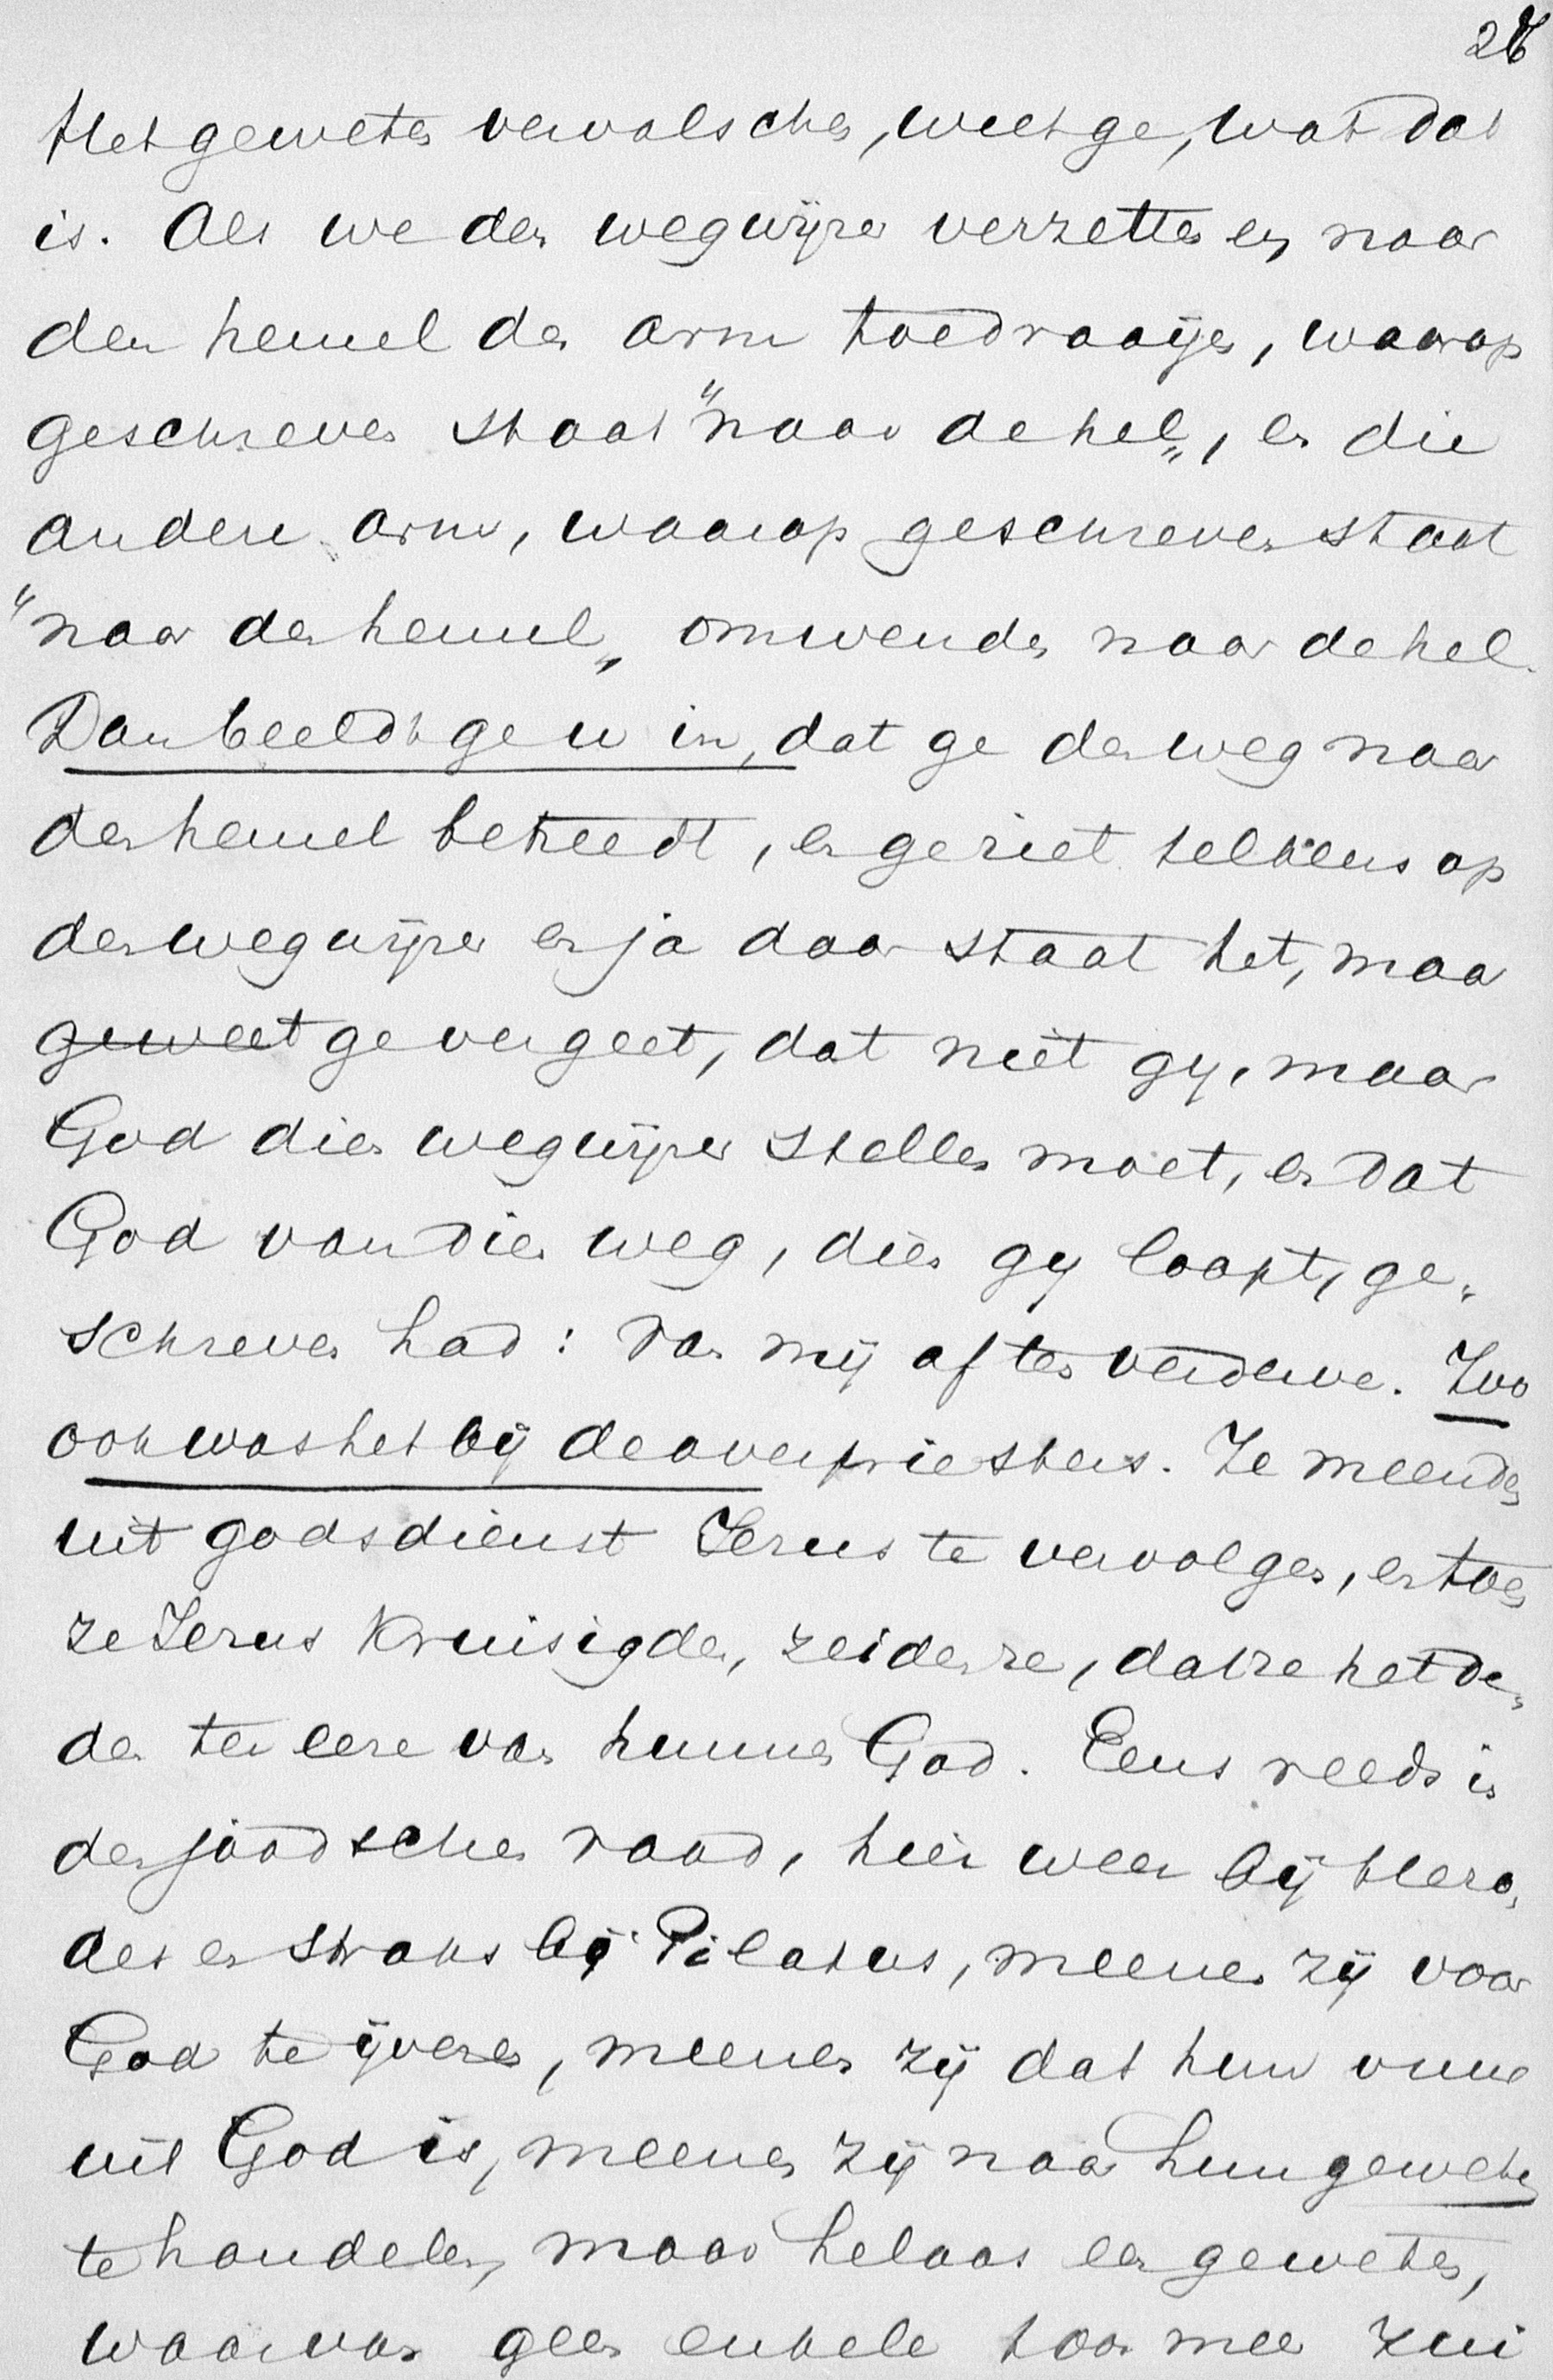 28
Het geweten vervalschen, weet ge, wat dat
is. Als we den wegwijzer verzetten en naar
den hemel den arm toedraaijen, waarop
geschreven staat "naar de hel„, en die
andere arm, waarop geschreven staat
"naar den hemel„ omwenden naar de hel.
Dan beeldt ge u in, dat ge den weg naar
den hemel betreedt, en ge ziet telkens op
den wegwijzer en ja daar staat het, maar
ge weet ge vergeet, dat niet gij, maar
God dien wegwijzer stellen moet, en dat
God van dien weg, dien gij loopt, ge„
schreven had: van mij af ten verderve. Zoo
ook was het bij de overpriesters. Ze meenden
uit godsdienst Jezus te vervolgen, en toen
ze Jezus kruisigden, zeiden ze, dat ze het de„
den ter eere van hunnen God. Eens reeds in
den joodschen raad, hier weer bij Hero„
des en straks bij Pilatus, meenen zij voor
God te ijveren, meenen zij dat hun ruine
uit God is, meenen zij naar hun geweten
te handelen, maar helaas een geweten,
waarvan geen enkele toon meer zui